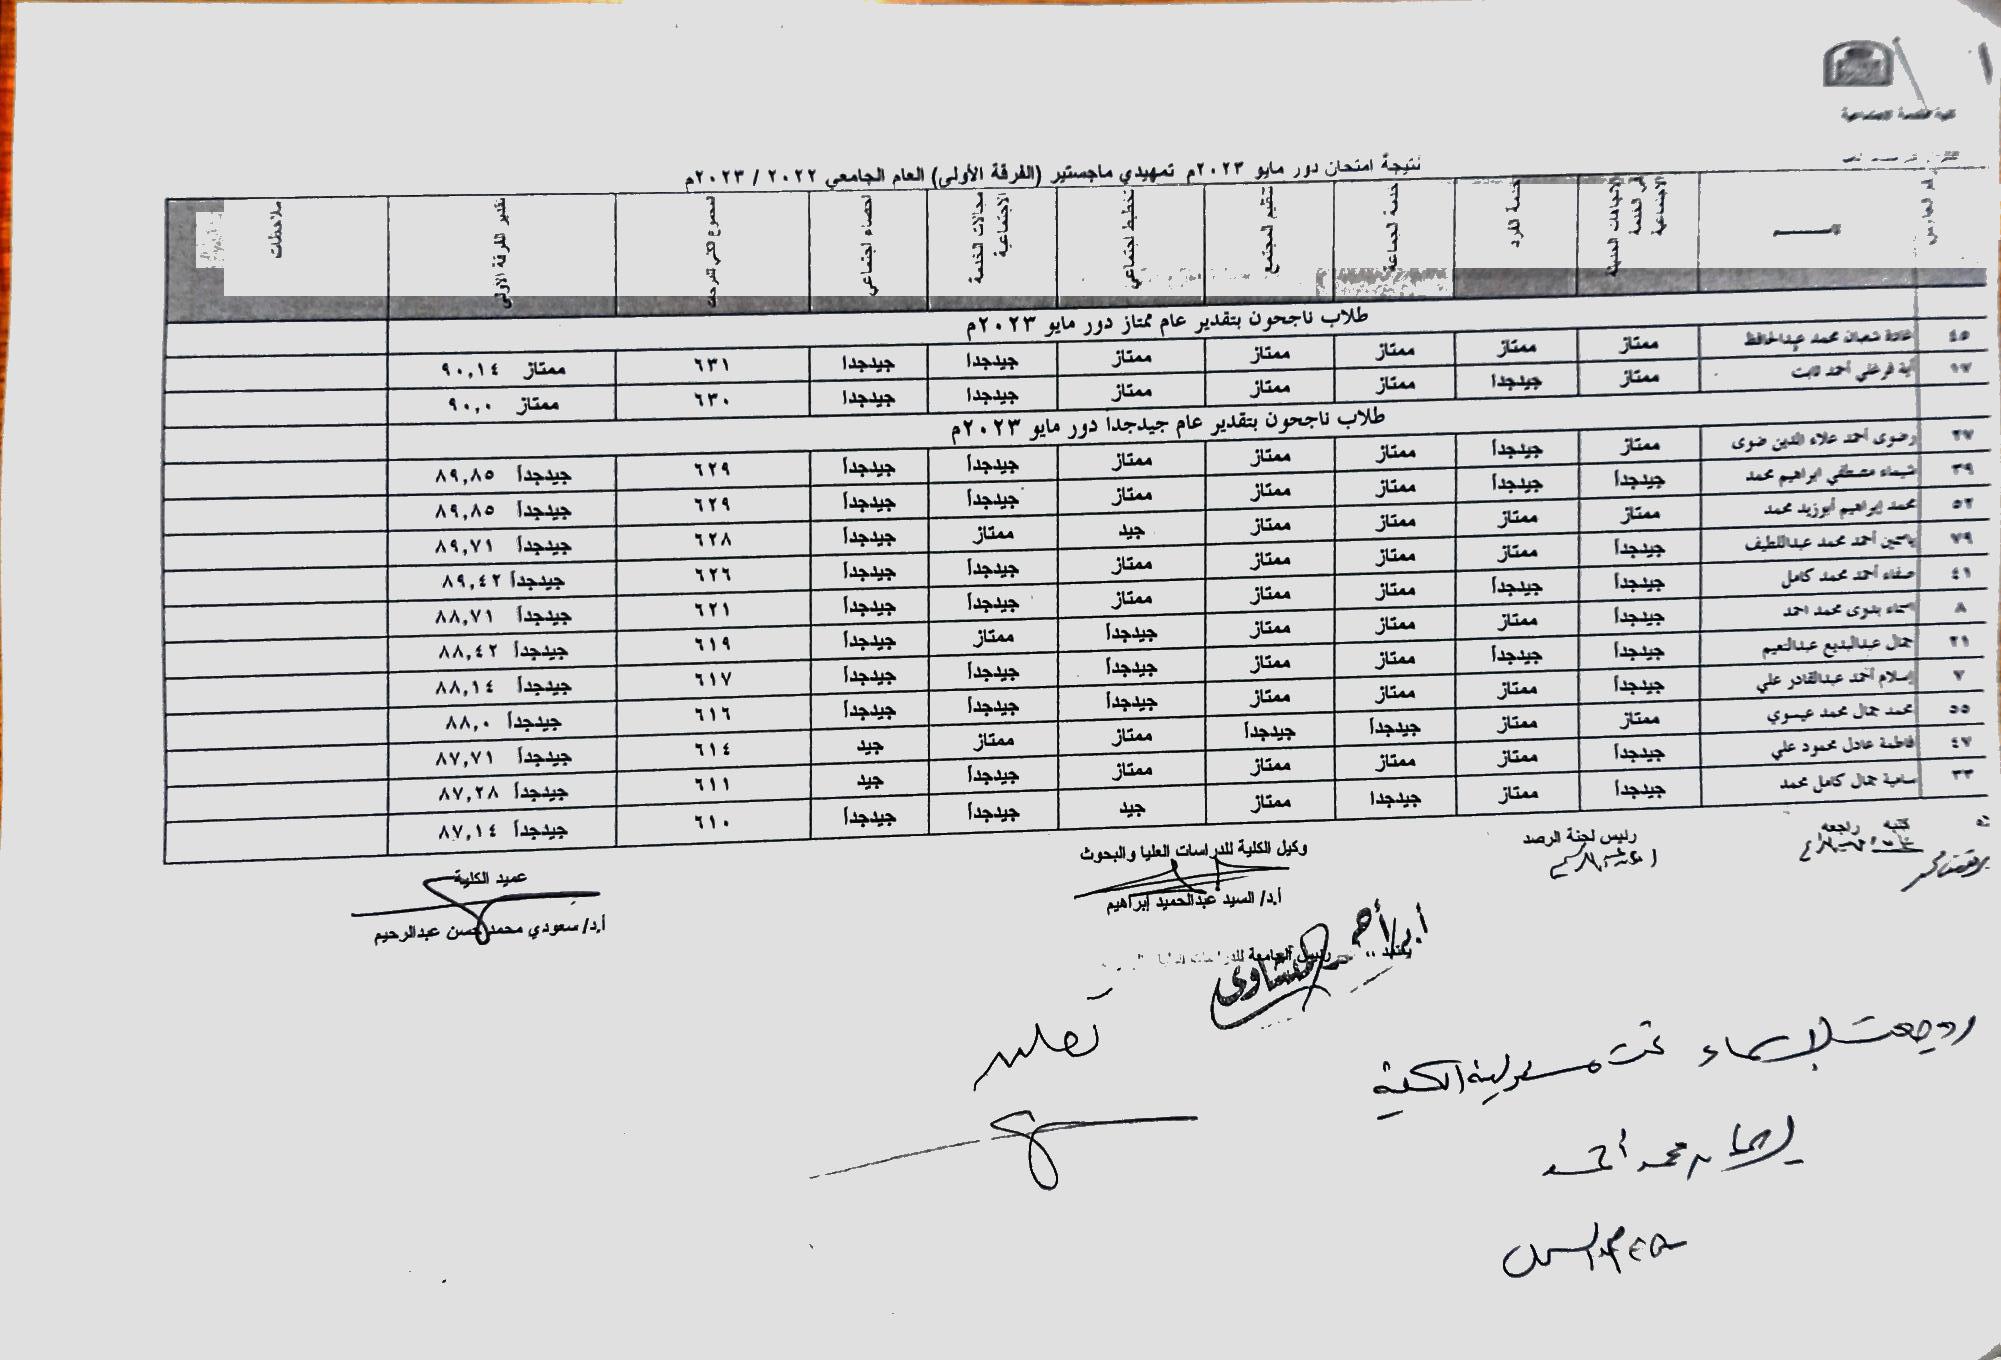 كلية الخدمة الاجتماعية
نتيجة امتحان دور مايو ٢٠٢٣م تمهيدي ماجستير (الفرقة الأولى) العام الجامعي ٢٠٢٢ / ٢٠٢٣م
رقم الجلوس الاســـــم الاتجاهات الحديثة في الخدمة الاجتماعية خدمة الفرد خدمة الجماعة تنظيم المجتمع تخطيط اجتماعي مجالات الخدمة الاجتماعية احصاء اجتماعي المجموع الكلي للدرجات تقدير الفرقة الأولى ملاحظات
طلاب ناجحون بتقدير عام ممتاز دور مايو ٢٠٢٣م
٤٥ غادة شعبان محمد عبدالحافظ ممتاز ممتاز ممتاز ممتاز ممتاز جيدجدا جيدجدا ٦٣١ ممتاز ٩٠,١٤
١٧ آية فرغلي أحمد ثابت ممتاز جيدجدا ممتاز ممتاز ممتاز جيدجدا جيدجدا ٦٣٠ ممتاز ٩٠,٠
طلاب ناجحون بتقدير عام جيدجدا دور مايو ٢٠٢٣م
٢٧ رضوى أحمد علاء الدين ضوى ممتاز جيدجداً ممتاز ممتاز ممتاز جيدجداً جيدجداً ٦٢٩ جيدجداً ٨٩,٨٥
٣٩ شيماء مصطفي ابراهيم محمد جيدجداً جيدجداً ممتاز ممتاز ممتاز جيدجداً جيدجداً ٦٢٩ جيدجداً ٨٩,٨٥
٥٢ محمد إبراهيم أبوزيد محمد ممتاز ممتاز ممتاز ممتاز جيد ممتاز جيدجداً ٦٢٨ جيدجداً ٨٩,٧١
٧٩ ياسمين أحمد محمد عبداللطيف جيدجداً ممتاز ممتاز ممتاز ممتاز جيدجداً جيدجداً ٦٢٦ جيدجداً ٨٩,٤٢
٤١ صفاء أحمد محمد كامل جيدجداً جيدجداً ممتاز ممتاز ممتاز جيدجداً جيدجداً ٦٢١ جيدجداً ٨٨,٧١
٨ اسماء بدوى محمد احمد جيدجداً ممتاز ممتاز ممتاز جيدجداً ممتاز جيدجداً ٦١٩ جيدجداً ٨٨,٤٢
٢١ جمال عبدالبديع عبدالنعيم جيدجداً جيدجداً ممتاز ممتاز جيدجداً جيدجداً جيدجداً ٦١٧ جيدجداً ٨٨,١٤
٧ إسلام أحمد عبدالقادر علي جيدجداً ممتاز ممتاز ممتاز جيدجداً جيدجداً جيدجداً ٦١٦ جيدجداً ٨٨,٠
٥٥ محمد جمال محمد عيسوي ممتاز ممتاز جيدجداً جيدجداً ممتاز ممتاز جيد ٦١٤ جيدجداً ٨٧,٧١
٤٧ فاطمة عادل محمود علي جيدجداً ممتاز ممتاز ممتاز ممتاز جيدجداً جيد ٦١١ جيدجداً ٨٧,٢٨
٣٣ سامية جمال كامل محمد جيدجداً ممتاز جيدجدا ممتاز جيد جيدجداً جيدجداً ٦١٠ جيدجداً ٨٧,١٤
كتبه راجعه رئيس لجنة الرصد وكيل الكلية للدراسات العليا والبحوث عميد الكلية
أ.د/ السيد عبدالحميد إبراهيم أ.د/ سعودي محمد حسن عبدالرحيم
يعتمد ،، رئيس الجامعة للدراسات العليا
أ.د/ أحمد المنشاوي
روجعت الأسماء تحت مسئولية الكلية
محمد أحمد